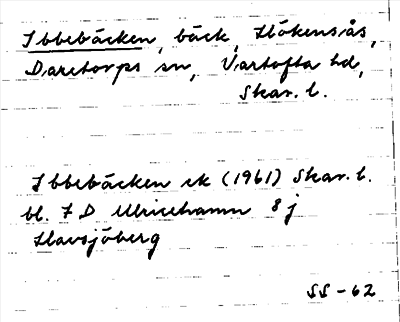 Ibbebäcken, bäck, Hökensås,
Daretorps sn, Vartofta hd,
Skar. l.
Ibbebäcken ek (1961) Skar. l.
bl. 7 D Ulricehamn 8 j
Havsjöberg
SS-62